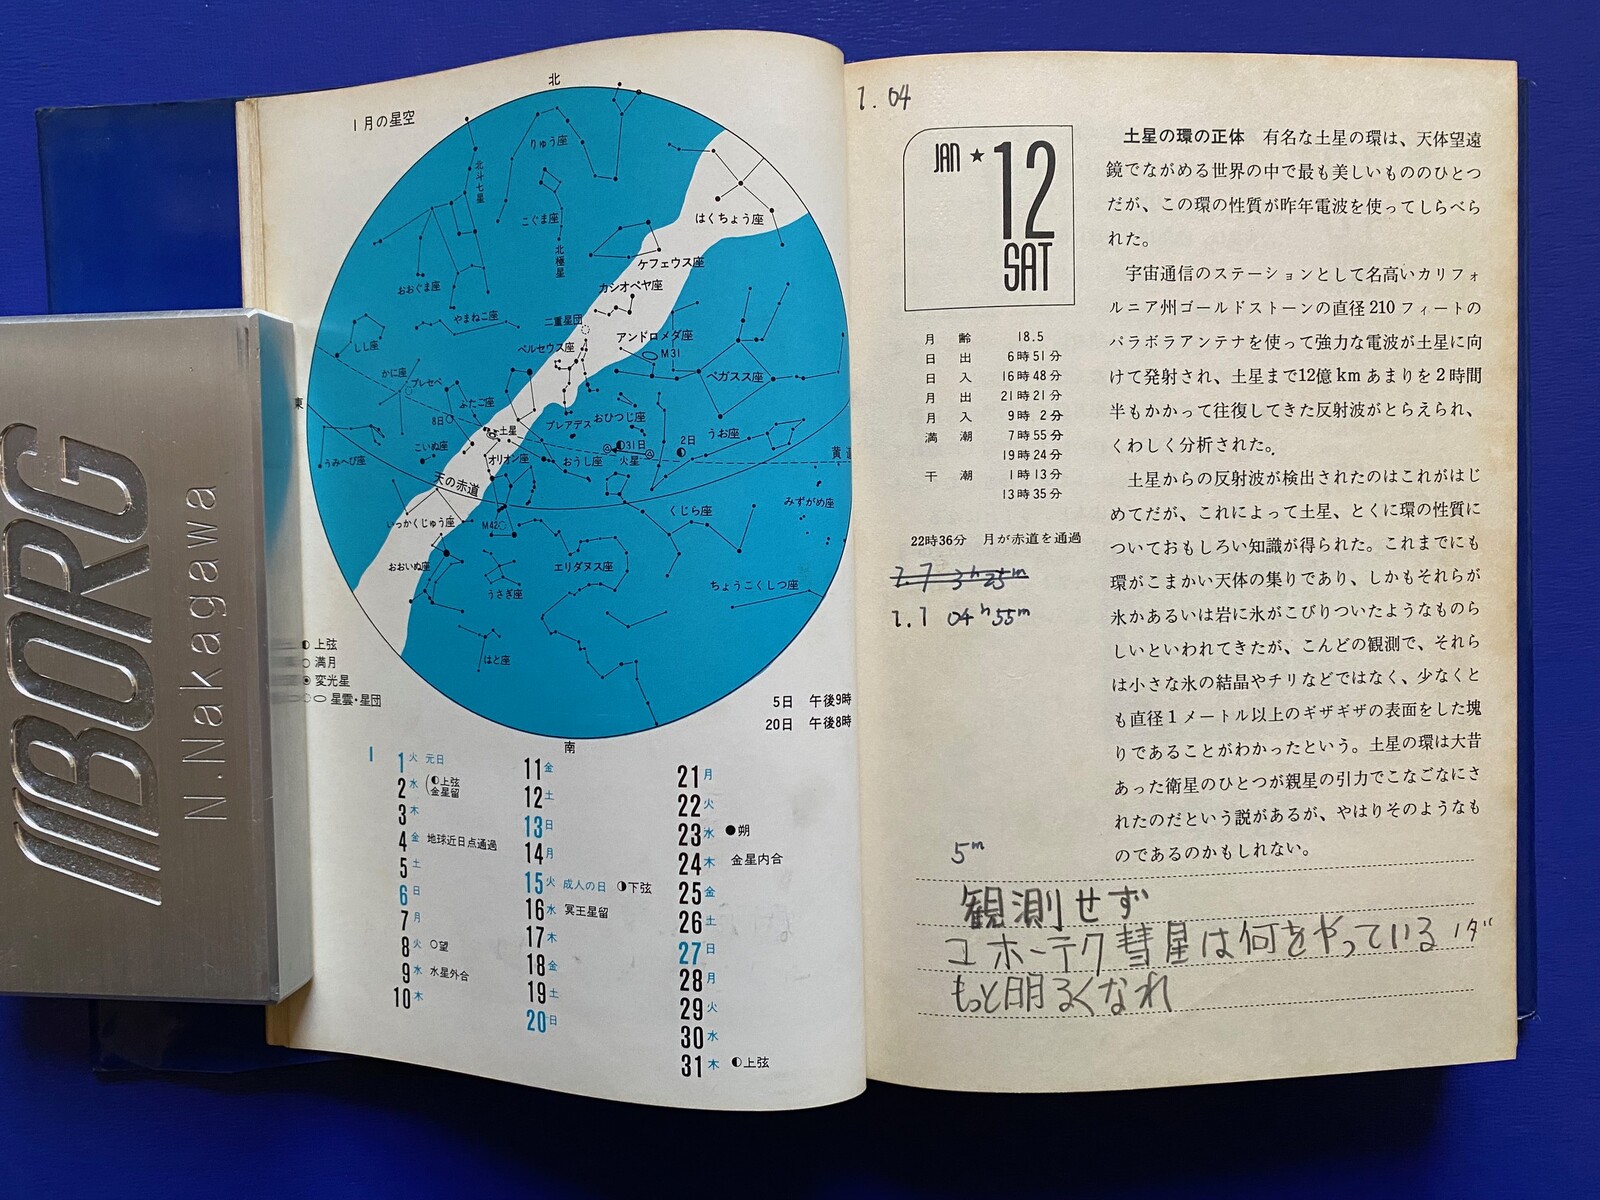 BORG
N.Nakagawa
1月の星空
北
りゅう座
北斗七星
こぐま座
北極星
はくちょう座
ケフェウス座
おおぐま座
カシオペヤ座
やまねこ座
二重星団
アンドロメダ座
しし座
ペルセウス座
M31
かに座
プレセペ
ペガスス座
東
ふたご座
8日
プレアデス
おひつじ座
土星
31日
2日
うお座
こいぬ座
オリオン座
おうし座
火星
黄道
うみへび座
天の赤道
みずがめ座
いっかくじゅう座
M42
くじら座
おおいぬ座
うさぎ座
エリダヌス座
ちょうこくしつ座
はと座
上弦
満月
変光星
星雲・星団
5日 午後9時
20日 午後8時
南
1
1火 元日
2水 上弦
金星留
3木
4金 地球近日点通過
5土
6日
7月
8火 望
9水 水星外合
10木
11金
12土
13日
14月
15火 成人の日 下弦
16水 冥王星留
17木
18金
19土
20日
21月
22火
23水 ●朔
24木 金星内合
25金
26土
27日
28月
29火
30水
31木 上弦
1.04
JAN ★ 12
SAT
月齢 18.5
日出 6時51分
日入 16時48分
月出 21時21分
月入 9時2分
満潮 7時55分
19時24分
干潮 1時13分
13時35分
22時36分 月が赤道を通過
1.1 04h55m
土星の環の正体 有名な土星の環は、天体望遠
鏡でながめる世界の中で最も美しいもののひとつ
だが、この環の性質が昨年電波を使ってしらべら
れた。
宇宙通信のステーションとして名高いカリフォ
ルニア州ゴールドストーンの直径210フィートの
パラボラアンテナを使って強力な電波が土星に向
けて発射され、土星まで12億kmあまりを2時間
半もかかって往復してきた反射波がとらえられ、
くわしく分析された。
土星からの反射波が検出されたのはこれがはじ
めてだが、これによって土星、とくに環の性質に
ついておもしろい知識が得られた。これまでにも
環がこまかい天体の集りであり、しかもそれらが
氷かあるいは岩に氷がこびりついたようなものら
しいといわれてきたが、こんどの観測で、それら
は小さな氷の結晶やチリなどではなく、少なくと
も直径1メートル以上のギザギザの表面をした塊
りであることがわかったという。土星の環は大昔
あった衛星のひとつが親星の引力でこなごなにさ
れたのだという説があるが、やはりそのようなも
のであるのかもしれない。
5m
観測せず
コホーテク彗星は何をやっているノダ
もっと明るくなれ